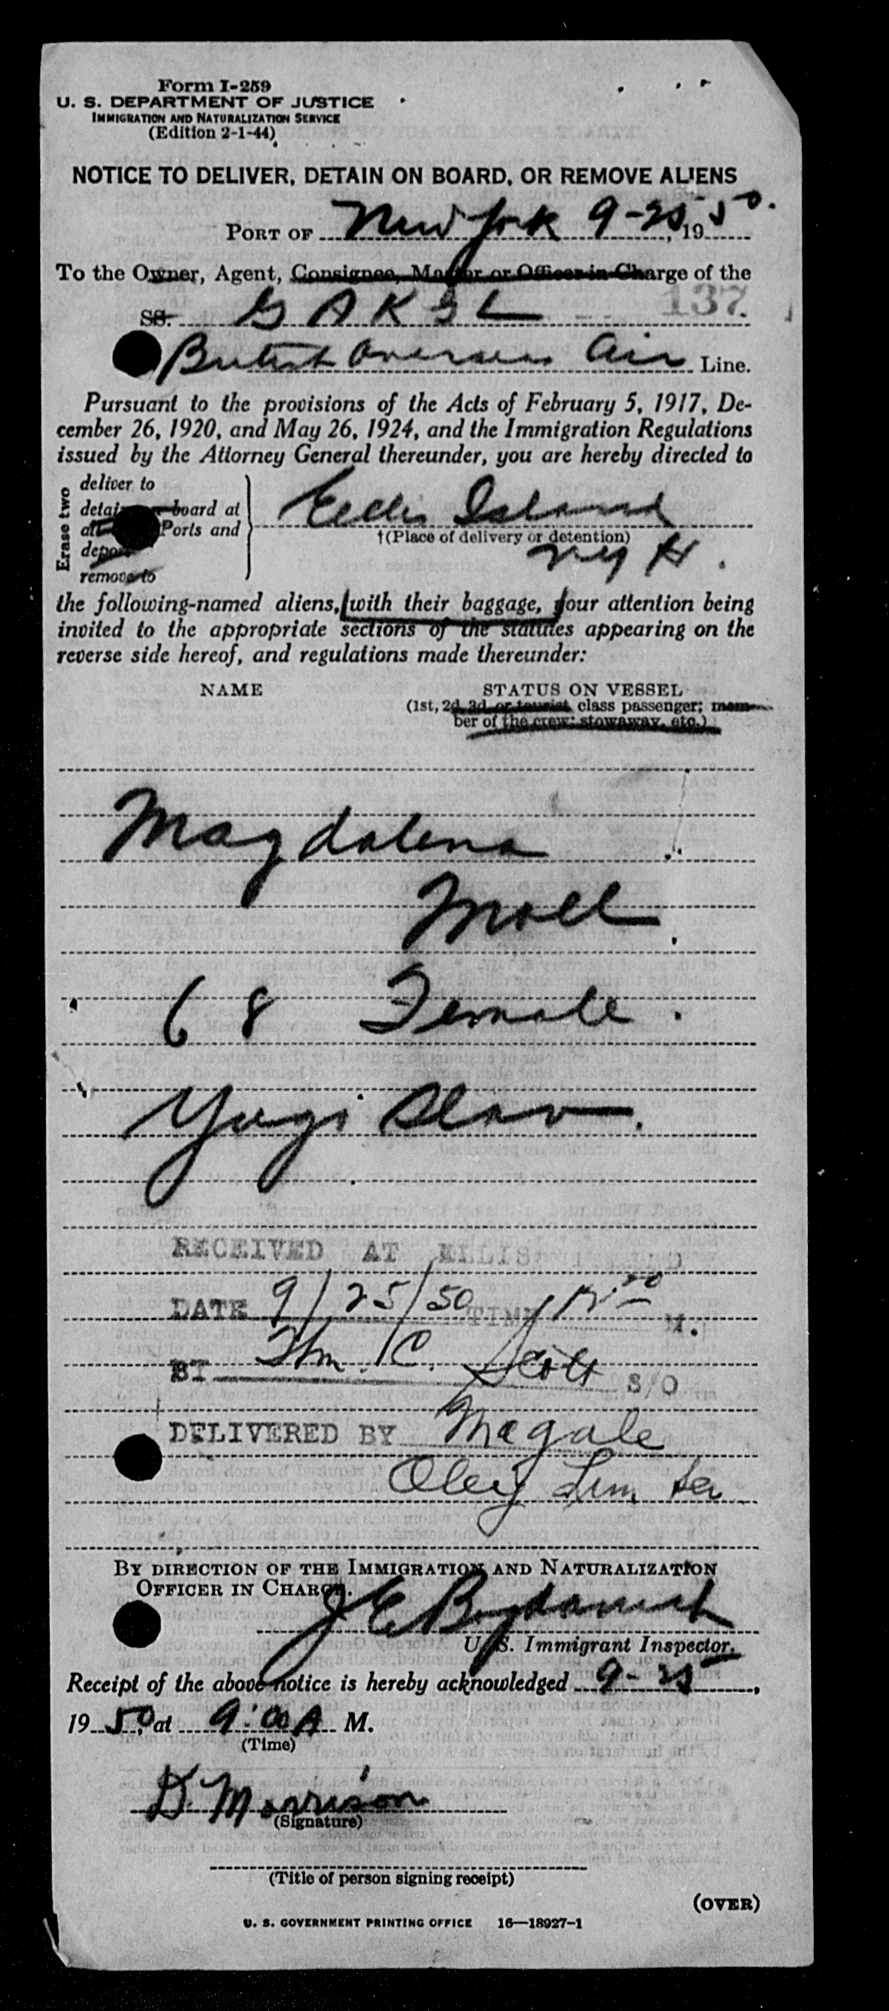 Form I-259
U. S. DEPARTMENT OF JUSTICE
IMMIGRATION AND NATURALIZATION SERVICE
(Edition 2-1-44)
NOTICE TO DELIVER, DETAIN ON BOARD, OR REMOVE ALIENS
PORT OF New York 9-25, 1950.
To the Owner, Agent, Consignee, Master or Officer in Charge of the
SS. G A K G L 137
British Overseas Air Line.
Pursuant to the provisions of the Acts of February 5, 1917, De-
cember 26, 1920, and May 26, 1924, and the Immigration Regulations
issued by the Attorney General thereunder, you are hereby directed to
Erase two
deliver to
detain on board at
Ports and
remove to
Ellis Island
†(Place of delivery or detention)
NY H.
the following-named aliens, with their baggage, your attention being
invited to the appropriate sections of the statutes appearing on the
reverse side hereof, and regulations made thereunder:
NAME STATUS ON VESSEL
(1st, 2d, 3d, or tourist class passenger; mem-
ber of the crew; stowaway, etc.)
Magdalena
Moll
68 Female.
Yugi Slav.
RECEIVED AT ELLIS
DATE 9/25/50 TIME M.
BY Wm. C. Scott S/O
DELIVERED BY Magale
Lim Ser
BY DIRECTION OF THE IMMIGRATION AND NATURALIZATION
OFFICER IN CHARGE.
J E Bogdanich
U. S. Immigrant Inspector.
Receipt of the above notice is hereby acknowledged 9-25,
1950, at 9:00 A M.
(Time)
D. Morrison
(Signature)
(Title of person signing receipt)
(OVER)
U. S. GOVERNMENT PRINTING OFFICE 16—18927-1